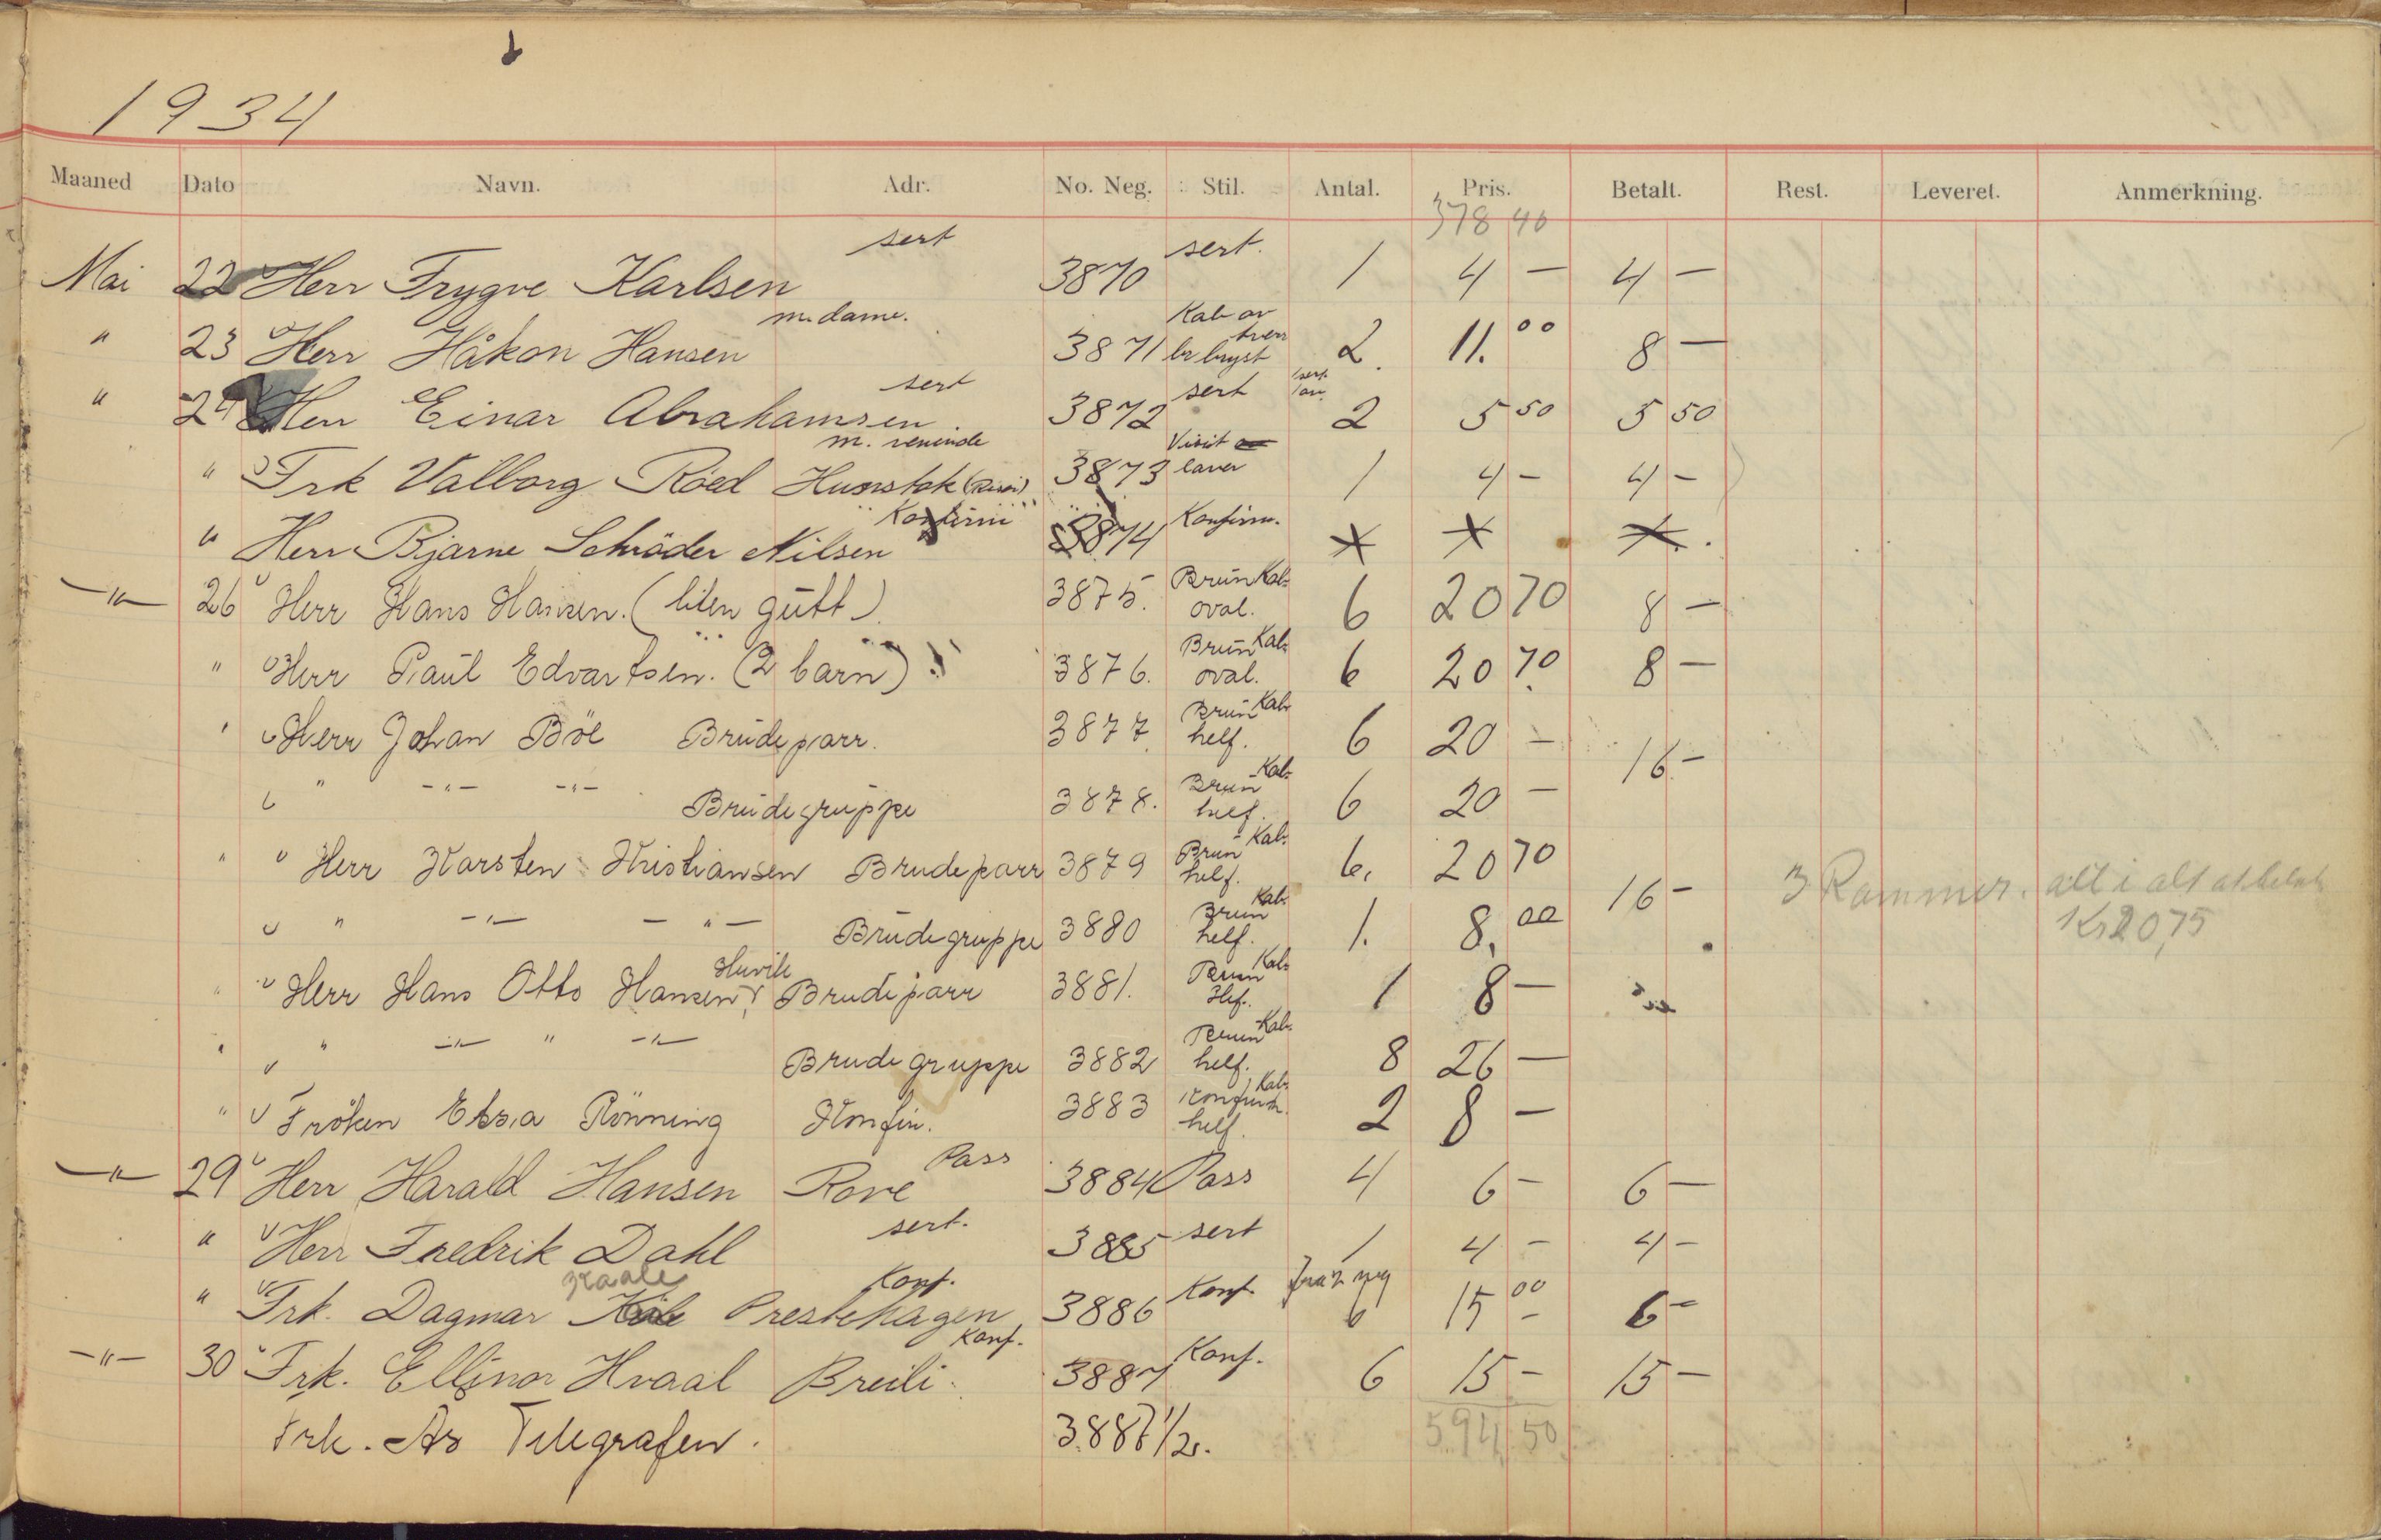 1934
Maaned Dato Navn. Adr. No. Neg. Stil. Antal. Pris. Betalt. Rest. Leveret. Anmerkning.
378 40
Mai 22 Herr Trygve Karlsen sert 3870 sert. 1 4 — 4 —
" 23 Herr Håkon Hansen m. dame. 3871 Kab av br bryst 2. 11.00 8 —
" 24 Herr Einar Abrahamsen sert 3872 sert 2 5 50 5 50
" Frk Valborg Röed m. veninde Humstok 3873 Visit 1 4 - 4 -
" Herr Bjarne Schröder Nilsen Konfirm 3874 Konfirm.
—"— 26 Herr Hans Hansen. (liten gutt). 3875. Brun Kab. oval. 6 20 70 8 —
" Herr Paul Edvartsen. (2 barn) 3876. Brun Kab. oval. 6 20 70 8 —
" Herr Johan Böe Brudeparr. 3877 Brun Kab helf. 6 20 —
" —"— —"— Brudegruppe 3878. Brun Kab. helf. 6 20 — 16 -
" Herr Karsten Kristiansen Brudeparr 3879 Brun Kab. helf. 6. 20 70
" —"— —"— Brudegruppe 3880 Brun Kab. helf. 1. 8.00 16 - 3 Rammer. alt i alt
Kr 20,75
" Herr Hans Otto Hansen Brudeparr 3881. Brun Kab. Hlf. 1 8 —
" " —"— " —"— Brudegruppe 3882 Brun Kab. helf. 8 26 —
" Fröken Ebba Rönning Konfir. 3883 Konfirm. Kab. helf. 2 8 —
—"— 29 Herr Harald Hansen Rove Pass 3884 Pass 4 6 - 6 —
" Herr Fredrik Dahl sert. 3885 sert 1 4 - 4 -
" Frk. Dagmar Prestehagen Konf. 3886 Konf. fra 2 neg 6 15 00 6 -
—"— 30 Frk. Ellinor Hvaal Breili Konf. 3887 Konf. 6 15 - 15 —
Frk. As Telegrafen. 3887 1/2.
594 50